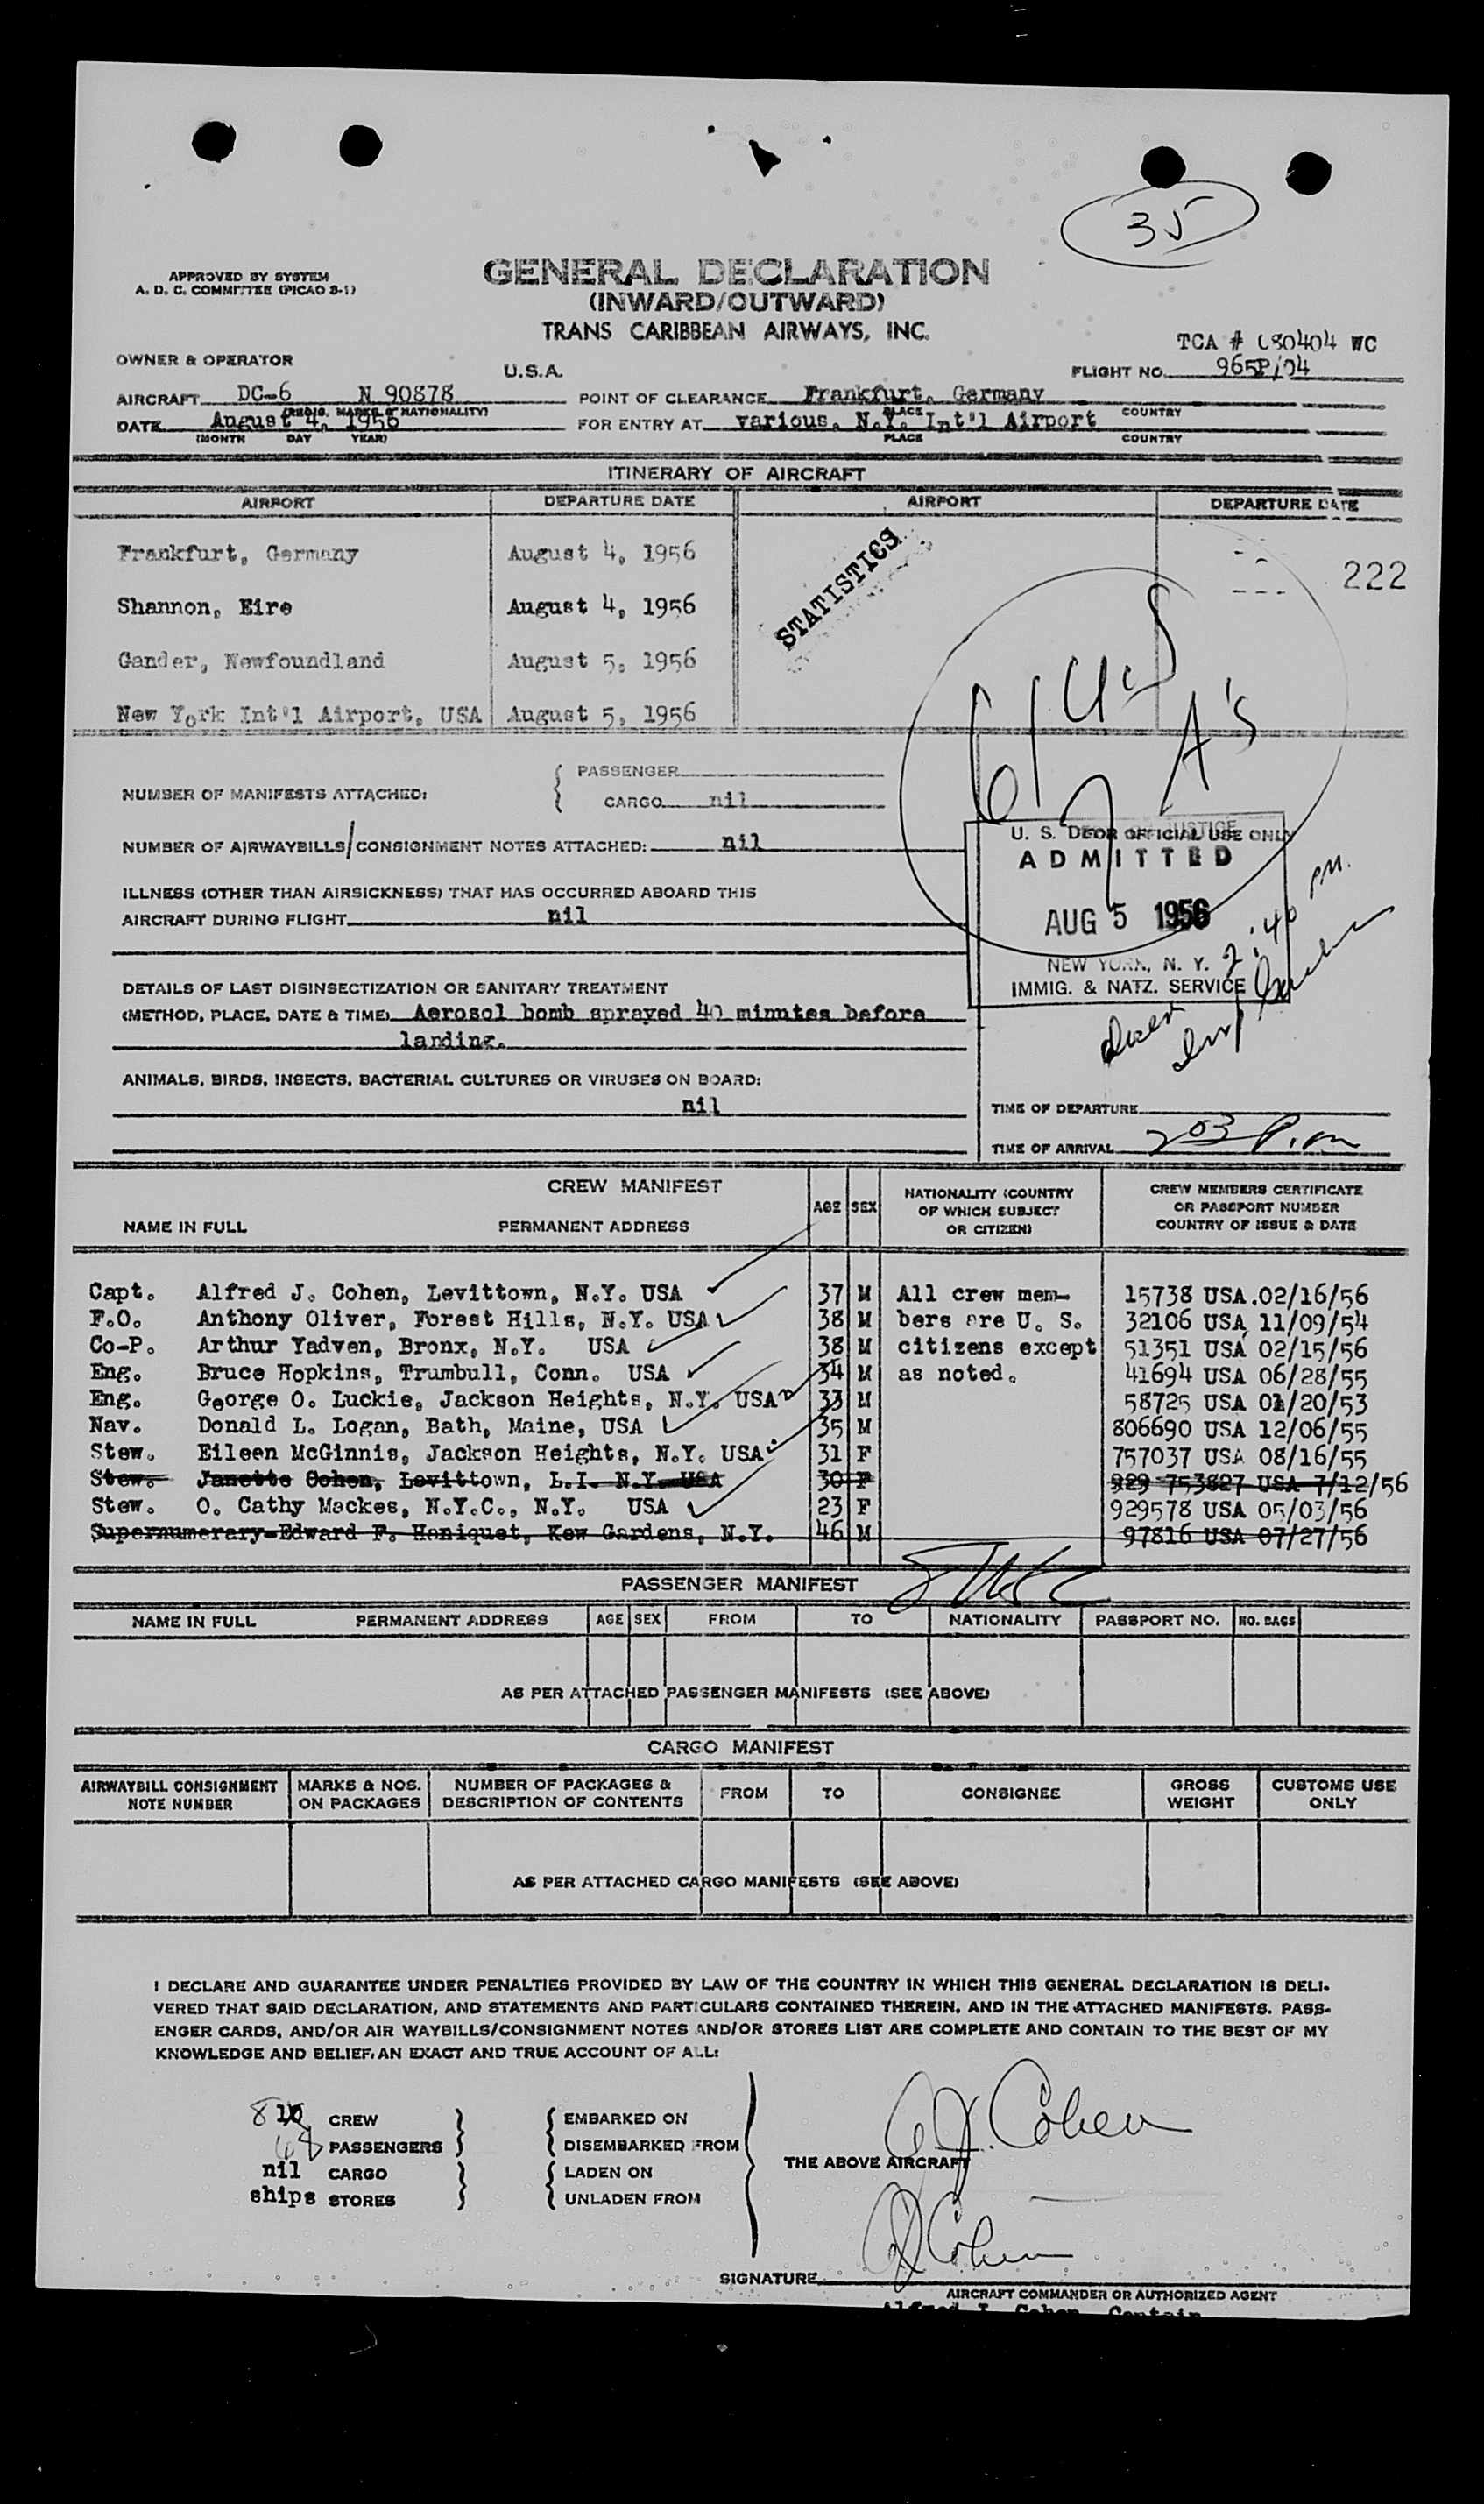 35
APPROVED BY SYSTEM
A. D. C. COMMITTEE (PICAO 8-1)
GENERAL DECLARATION
(INWARD/OUTWARD)
TRANS CARIBBEAN AIRWAYS, INC.
TCA # 080404 WC
OWNER & OPERATOR
U.S.A.
FLIGHT NO. 965P/04
AIRCRAFT DC-6 N 90878
POINT OF CLEARANCE Frankfurt, Germany
(REGIS. MARKS & NATIONALITY)
PLACE COUNTRY
DATE August 4, 1956
FOR ENTRY AT various. N.Y. Int'l Airport
(MONTH DAY YEAR)
PLACE COUNTRY
ITINERARY OF AIRCRAFT
AIRPORT DEPARTURE DATE AIRPORT DEPARTURE DATE
Frankfurt, Germany August 4, 1956
STATISTICS
222
Shannon, Eire August 4, 1956
Gander, Newfoundland August 5, 1956
New York Int'l Airport, USA August 5, 1956
61 UcS
7 A's
NUMBER OF MANIFESTS ATTACHED:
PASSENGER
CARGO nil
NUMBER OF AIRWAYBILLS/CONSIGNMENT NOTES ATTACHED: nil
ILLNESS (OTHER THAN AIRSICKNESS) THAT HAS OCCURRED ABOARD THIS
AIRCRAFT DURING FLIGHT nil
FOR OFFICIAL USE ONLY
U. S. DE JUSTICE
ADMITTED
AUG 5 1956
NEW YORK, N. Y.
IMMIG. & NATZ. SERVICE
2:40 PM.
DETAILS OF LAST DISINSECTIZATION OR SANITARY TREATMENT
(METHOD, PLACE, DATE & TIME) Aerosol bomb sprayed 40 minutes before
landing.
ANIMALS, BIRDS, INSECTS, BACTERIAL CULTURES OR VIRUSES ON BOARD:
nil
TIME OF DEPARTURE
TIME OF ARRIVAL 203 P.m
CREW MANIFEST
NAME IN FULL PERMANENT ADDRESS
AGE SEX
NATIONALITY (COUNTRY
OF WHICH SUBJECT
OR CITIZEN)
CREW MEMBERS CERTIFICATE
OR PASSPORT NUMBER
COUNTRY OF ISSUE & DATE
Capt. Alfred J. Cohen, Levittown, N.Y. USA 37 M All crew mem- 15738 USA.02/16/56
F.O. Anthony Oliver, Forest Hills, N.Y. USA 38 M bers are U. S. 32106 USA 11/09/54
Co-P. Arthur Yadven, Bronx, N.Y. USA 38 M citizens except 51351 USA 02/15/56
Eng. Bruce Hopkins, Trumbull, Conn. USA 34 M as noted. 41694 USA 06/28/55
Eng. George O. Luckie, Jackson Heights, N.Y. USA 33 M 58725 USA 01/20/53
Nav. Donald L. Logan, Bath, Maine, USA 35 M 806690 USA 12/06/55
Stew. Eileen McGinnis, Jackson Heights, N.Y. USA 31 F 757037 USA 08/16/55
Stew. Janette Cohen, Levittown, L.I. N.Y. USA 30 F 929 753827 USA 7/12/56
Stew. O. Cathy Mackes, N.Y.C., N.Y. USA 23 F 929578 USA 05/03/56
Supernumerary-Edward F. Haniquet, Kew Gardens, N.Y. 46 M 97816 USA 07/27/56
PASSENGER MANIFEST
NAME IN FULL PERMANENT ADDRESS AGE SEX FROM TO NATIONALITY PASSPORT NO. NO. BAGS
AS PER ATTACHED PASSENGER MANIFESTS (SEE ABOVE)
CARGO MANIFEST
AIRWAYBILL CONSIGNMENT
NOTE NUMBER
MARKS & NOS.
ON PACKAGES
NUMBER OF PACKAGES &
DESCRIPTION OF CONTENTS
FROM TO CONSIGNEE
GROSS
WEIGHT
CUSTOMS USE
ONLY
AS PER ATTACHED CARGO MANIFESTS (SEE ABOVE)
I DECLARE AND GUARANTEE UNDER PENALTIES PROVIDED BY LAW OF THE COUNTRY IN WHICH THIS GENERAL DECLARATION IS DELI-
VERED THAT SAID DECLARATION, AND STATEMENTS AND PARTICULARS CONTAINED THEREIN, AND IN THE ATTACHED MANIFESTS, PASS-
ENGER CARDS, AND/OR AIR WAYBILLS/CONSIGNMENT NOTES AND/OR STORES LIST ARE COMPLETE AND CONTAIN TO THE BEST OF MY
KNOWLEDGE AND BELIEF, AN EXACT AND TRUE ACCOUNT OF ALL:
8 10 CREW
68 PASSENGERS
nil CARGO
ships STORES
EMBARKED ON
DISEMBARKED FROM
LADEN ON
UNLADEN FROM
THE ABOVE AIRCRAFT
AJ. Cohen
AJ Cohen
SIGNATURE
AIRCRAFT COMMANDER OR AUTHORIZED AGENT
Alfred J. Cohen, Captain